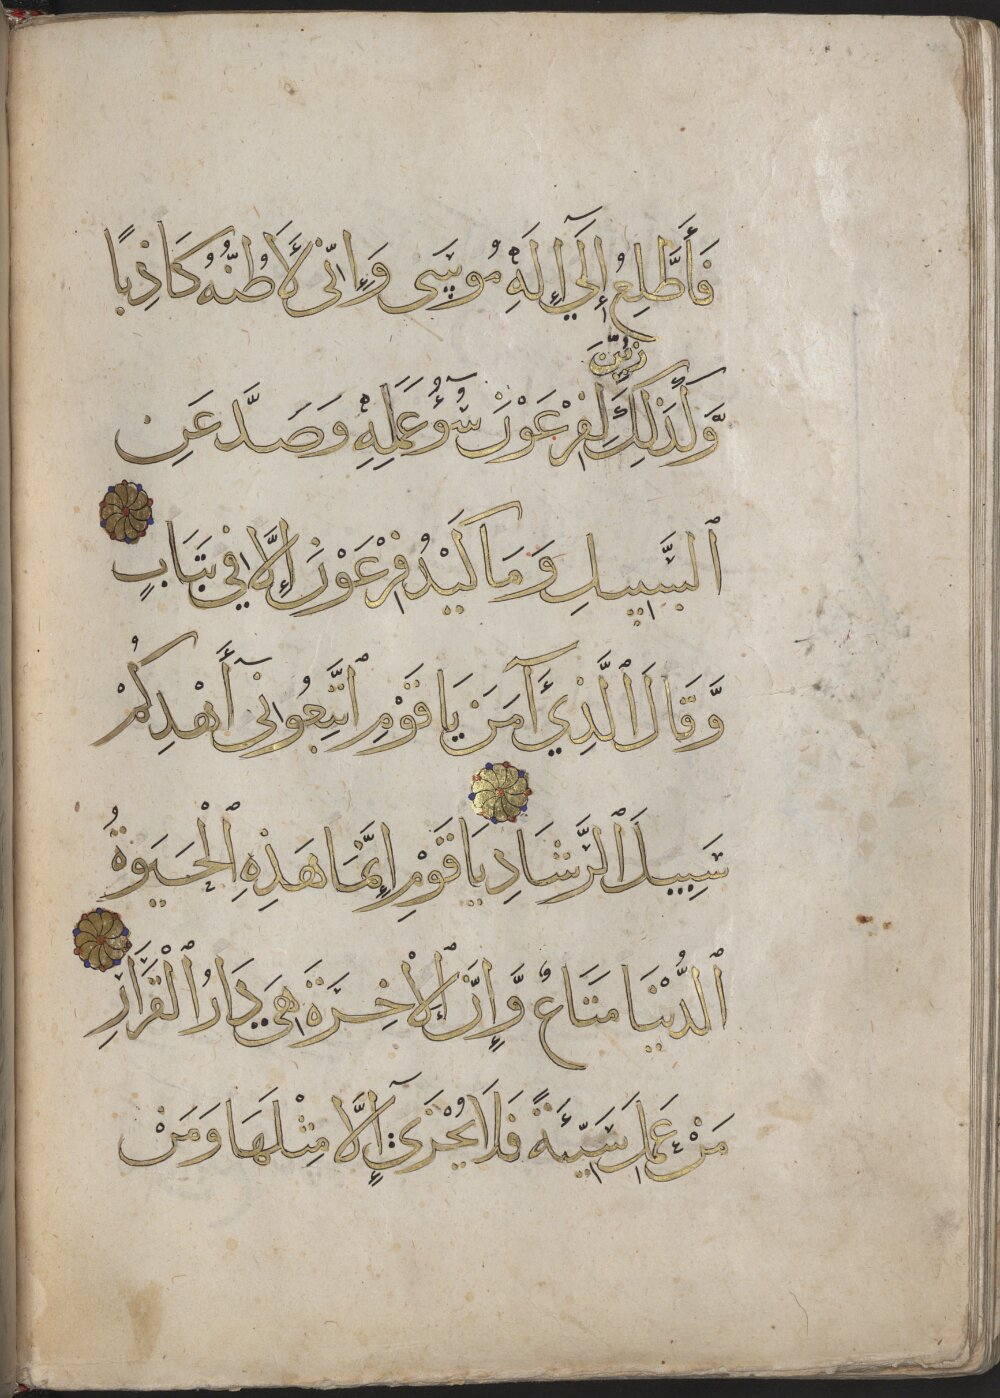 فَأَطَّلِعُ إِلَىٰٓ إِلَٰهِ مُوسَى وَإِنِّى لَأَظُنُّهُ كَاذِبًا
زُيِّنَ
وَكَذَلِكَ لِفِرْعَوْنَ سُوٓءُ عَمَلِهِ وَصَدَّ عَنِ
ٱلسَّبِيلِ وَمَا كَيْدُ فِرْعَوْنَ إِلَّا فِي تَبَابٍ
وَقَالَ ٱلَّذِيٓ آمَنَ يَا قَوْمِ ٱتَّبِعُونِىٓ أَهْدِكُمْ
سَبِيلَ ٱلرَّشَادِ يَا قَوْمِ إِنَّمَا هَذِهِ ٱلْحَيَوٰةُ
ٱلدُّنْيَا مَتَاعٌ وَّإِنَّ ٱلْاخِرَةَ هِىَ دَارُ ٱلْقَرَارِ
مَنْ عَمِلَ سَيِّئَةً فَلَا يُجْزَىٰٓ إِلَّا مِثْلَهَا وَمَنْ